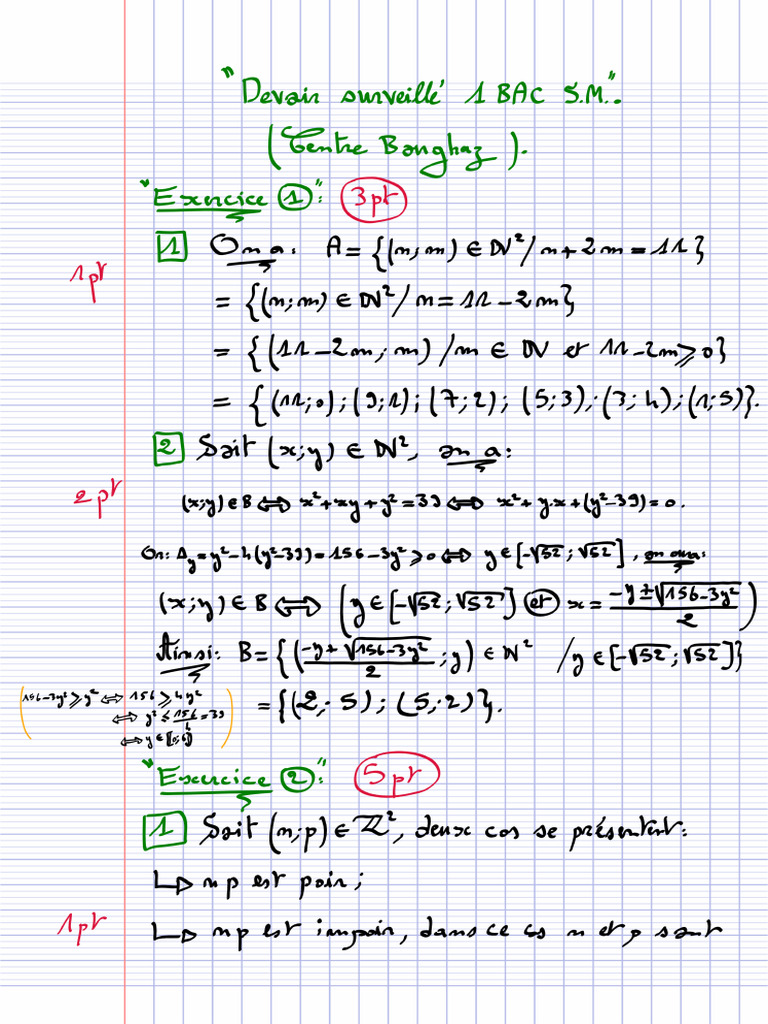 "Devoir surveillé 1 BAC S.M".
(Centre Boughaz).
"Exercice 1": 3pt
1 On a: A = {(n;m) ∈ ℕ² / n + 2m = 11}
1pt
= {(n;m) ∈ ℕ² / n = 11 - 2m}
= {(11-2m; m) / m ∈ ℕ et 11-2m ≥ 0}
= {(11;0); (9;1); (7;2); (5;3); (3;4); (1;5)}.
2 Soit (x;y) ∈ ℕ², on a:
2pt
(x;y) ∈ B ⟺ x² + xy + y² = 39 ⟺ x² + y.x + (y²-39) = 0.
On: Δy = y² - 4(y²-39) = 156 - 3y² ≥ 0 ⟺ y ∈ [-√52 ; √52], on aura:
(x;y) ∈ B ⟺ (y ∈ [-√52 ; √52] et x = (-y ± √(156-3y²))/2)
Ainsi: B = {((-y + √(156-3y²))/2 ; y) ∈ ℕ² / y ∈ [-√52 ; √52]}
(156-3y² ≥ y² ⟺ 156 ≥ 4y²
⟺ y² ≤ 156/4 = 39
⟺ y ∈ [0;6])
= {(2; 5); (5; 2)}.
"Exercice 2": 5pt
1 Soit (n;p) ∈ ℤ², deux cas se présentent:
↳ np est pair;
1pt
↳ np est impair, dans ce cs n et p sont